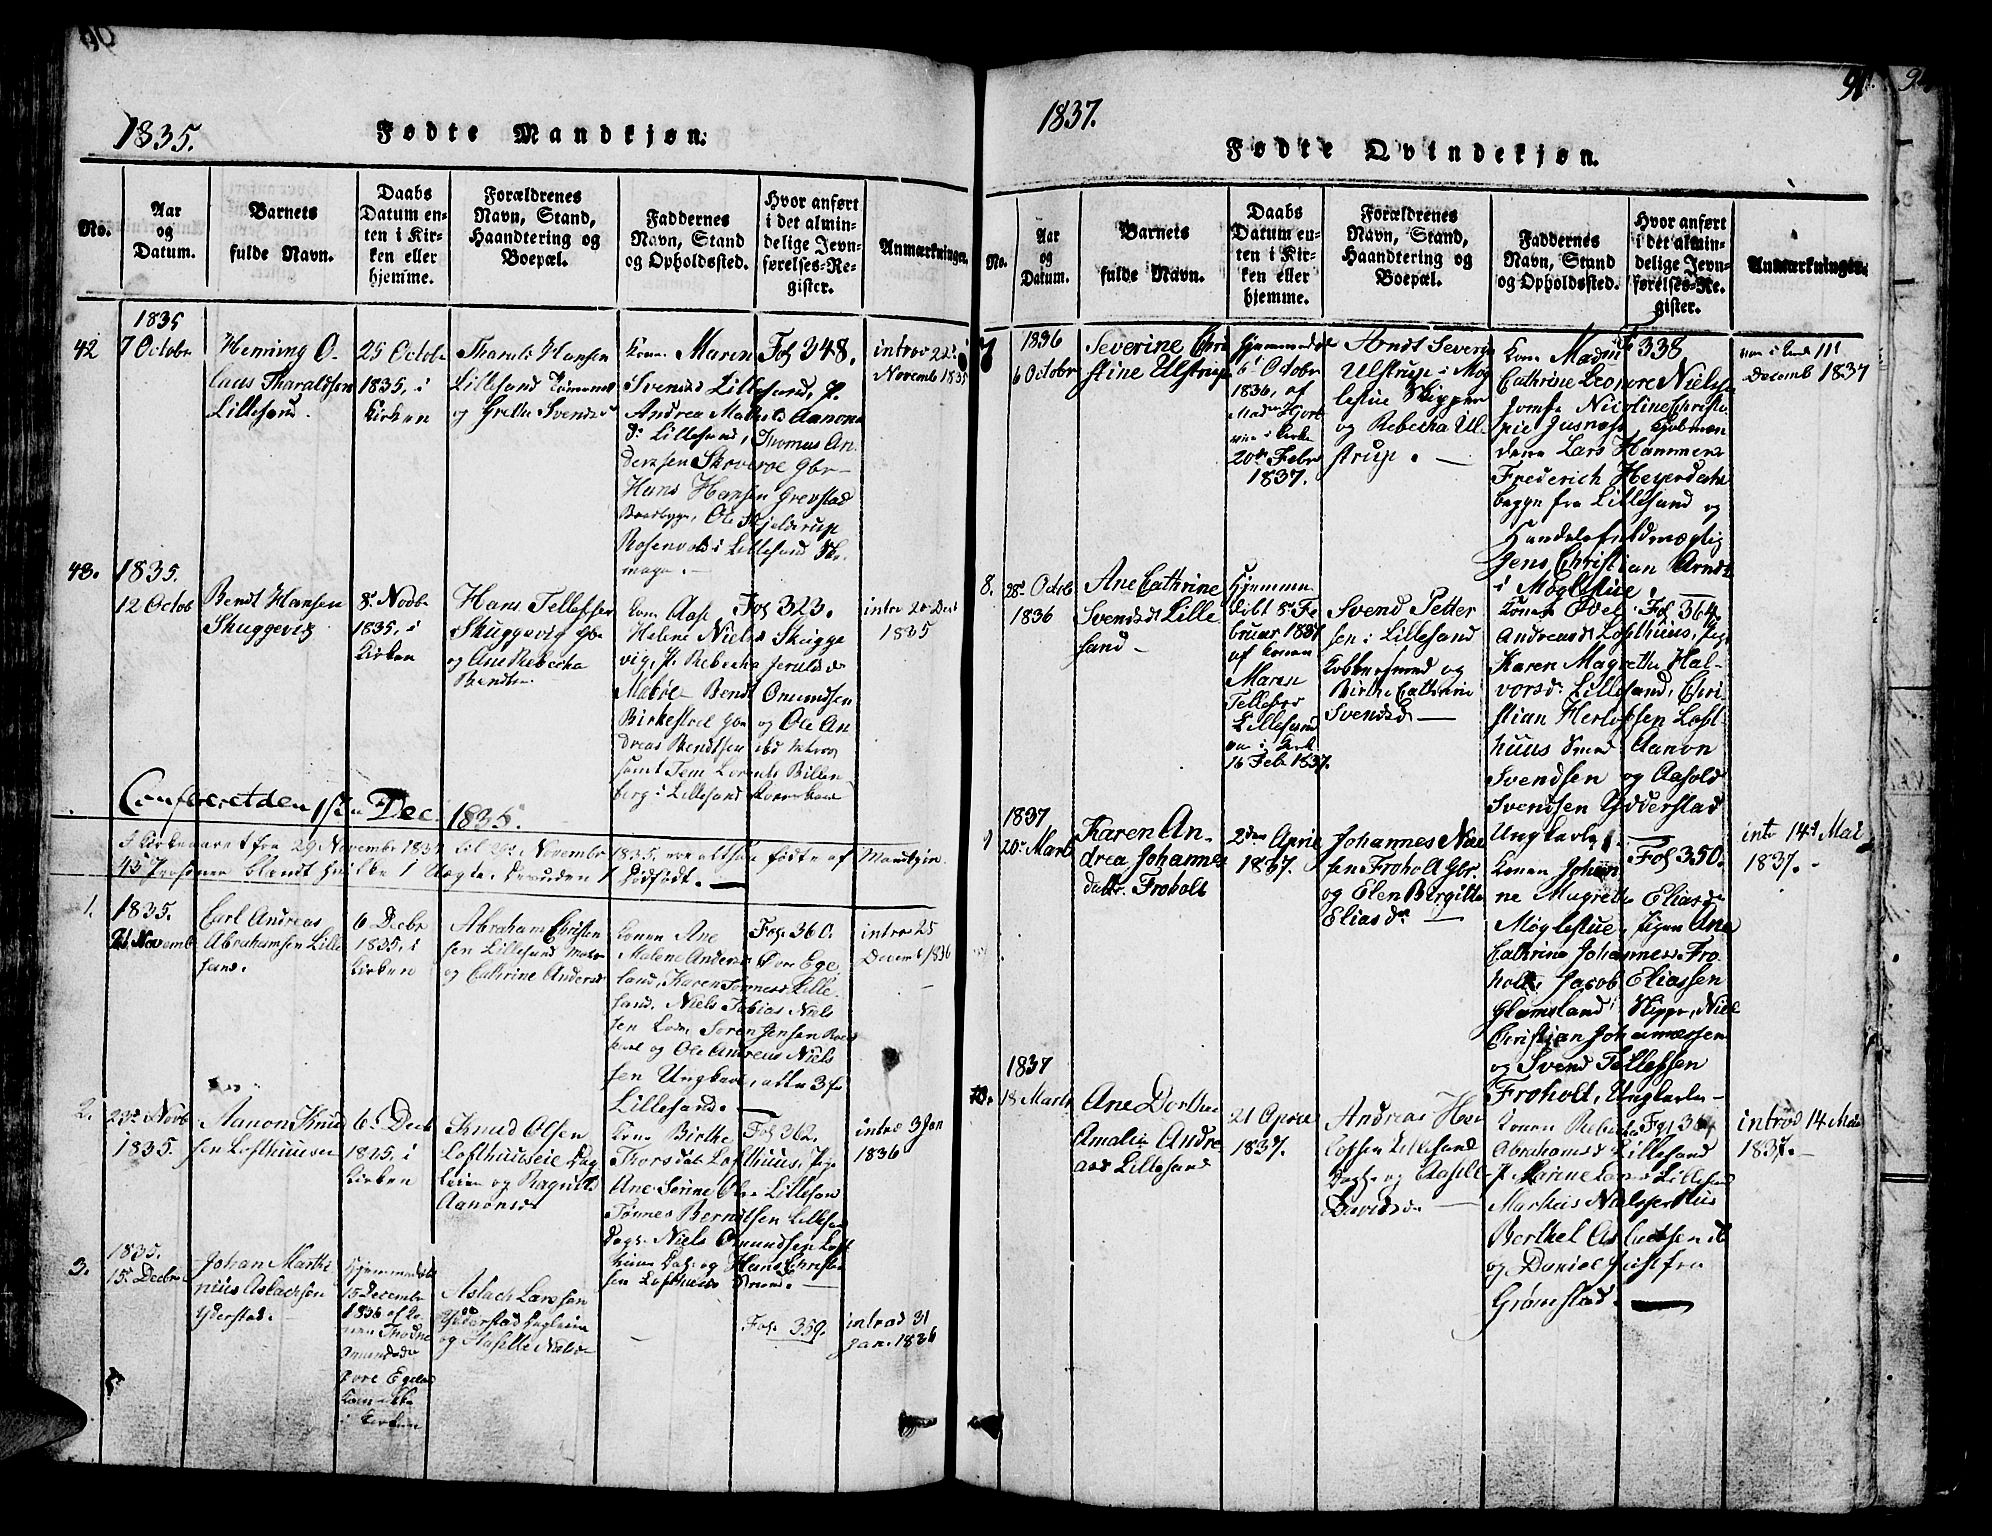 90
1835.
Fødte Mandkjøn.
No.
Aar
og
Datum.
Barnets
fulde Navn.
Daabs
Datum en-
ten i Kir-
ken eller
hjemme.
Forældrenes
Navn, Stand,
Haandtering og
Boepæl.
Faddernes
Navn, Stand
og Opholdssted.
Hvor anført
i det almin-
delige Jevn-
førelses-Re-
gister.
Anmærkninger.
42
1835
7 Octobr
Henning O-
laus Tharaldsen
Lillesand.
25 Octobr
1835, i
Kirken
Tharald Hansen
Lillesand
og Grethe Svends
Kone Maren
Svensd Lillesand, P.
Andrea
Lillesand, Thomas An
dersen Skoverøe Gbr
Hans Hansen Grevstad
Ole Hjelderup
Rosenvold i Lillesand
Fol 348.
introd 22
Novemb 1835
43.
1835.
12 Octob
Bendt Hansen
Skuggevig
8 Novbr
1835, i
Kirken
Hans Tellefsen
Skuggevig Gbr
og Ane Rebecha
Bendtsd
Kone Aase
Helene Nielsd Skugge
vig, P. Rebecha
Bendt Omundsen
Birkestoel Gbr og Ole An
dreas Bendtsen
samt Jem Lorents Billen
berg i Lillesand
Fol 323.
introd 20 Dec
1835
Confereret den 1ste Dec. 1835.
I Kirkeaaret fra 29 Novembr 1834 til 29 Novembr 1835 ere altsaa fødte af Mandkjøn
43 Personer blandt hvilke 1 Uægte. Desuden 1 Dødfødt.
1.
1835.
21 Novemb
Carl Andreas
Abrahamsen Lille
sand.
6 Decbr
1835, i
Kirken
Abraham Christen
sen Lillesand
og Cathrine Andersd
Konen Ane
Malene Andersd Øvre Ege
land, Karen Tønnesd Lille
sand. Niels Tobias Niels
sen Lods, Søren Jensen
og Ole Andreas Niels
sen Ungkarl, alle 3 fra
Lillesand.
Fol. 360.
introd 25
Decemb 1836
2.
23d Novb
1835.
Aanon Knud
sen Lofthuuseie
6 Decb
1835, i
Kirken
Knud Olsen
Lofthuuseie Dag
leier og Ragnild
Aanonsd
Kone Birthe
Thorsdat Lofthuus, Pige
Ane Serine Olsd Lillesand
Tønnes Berndtsen Lillesand
Dags. Niels Omundsen Loft
huus Dags. og Hans Christen
sen Lofthuus Smed.
Fol 362.
introd 3 Jan
1836
3.
1835.
15 Decbr
Johan Marthi
nius Aslachsen
Yderstad.
Hjemmedøbt
15 December
1835 af Ko
nen Thodne
Amundsdr
Øvre Egeland
Kom ikke
i Kirken
Aslach Larssen
Ydderstad Dagleier
og Aaselle Nielsd
Fol. 359.
introd 31
Jan. 1836
91.
1837.
Fødte Qvindekjøn.
No.
Aar
og
Datum.
Barnets
fulde Navn.
Daabs
Datum en-
ten i Kir-
ken eller
hjemme.
Forældrenes
Navn, Stand,
Haandtering og
Boepæl.
Faddernes
Navn, Stand
og Opholdssted.
Hvor anført
i det almin-
delige Jevn-
førelses-Re-
gister.
Anmærkninger.
7
1836
6 Octobr
Severine Chri
stine Ulstrup
Hjemmedøbt
6 Octobr
1836, af
Madm Hjort
var i Kirke
20de Febr
1837.
Arndt Severin
Ulstrup i Møg
lestue Skipper
og Rebecha Ul-
strup.
Kone Madm
Cathrine Leonore Nielsen
Jomfr Nicoline Christi
Kjøbmæn
dene Lars Hammer
Frederich Heyerdahl
begge fra Lillesand og
Handelsfuldmægtig
Jens Christian Arndt
i Møglestue.
Fo 338
Decemb 1837
8.
28 Octob
1836
Ane Cathrine
Svendsdt Lille
sand
Hjemme
døbt 5 Fe
bruar 1837
af Konen
Maren
Tellefsd
Lillesand
var i Kirk
16 Feb. 1837.
Svend Petter
sen i Lillesand
Kobbersmed og
Birthe Cathrine
Svendsd
Konen Odel
Andreasd Lofthuus, Pige
Karen Magrethe Hal-
vorsd. Lillesand, Chri
stian Herlofsen Loft
huus Smed Aanon
Svendsen og Aasold
Svendsen Ydderstad
Ungkarle.
Fol 364.
9
1837
20 Marti
Karen An-
drea Johannes
datt. Froholt
2den April
1837.
Johannes Niel
sen Froholt Gbr.
og Elen Bergitte
Eliasdr
Konen Johan
ne Magrethe Eliasdr
Møglestue, Pigen Ane
Cathrine Johannesd. Fro
holt, Jacob Eliassen
Glamsland Skipper, Niels
Christian Johannessen
og Svend Tellefsen
Froholt, Ungkarle
Fol 350.
introd 14d Mai
1837.
10.
1837
18 Marti
Ane Dorthe
Amalia Andre
asd Lillesand
21 April
1837.
Andreas Her
lofsen Lillesand
Dags. og Aaselle
Davidsd
Konen Rebecha
Abrahamsd Lillesand
P. Marine Larsd Lillesand
Markus Nielssen
Berthel Aslachsen
og Daniel Just fra
Grømstad.
Fol 364
introd 14 Mai
1837.